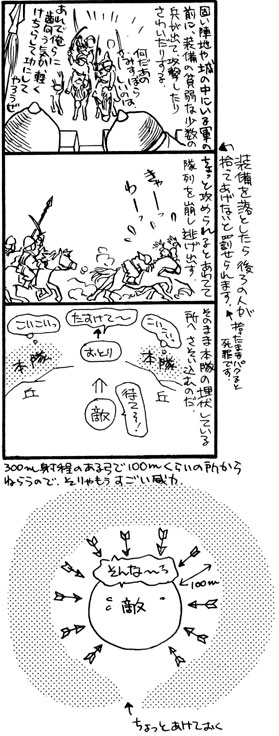 固い陣地や城の中にいる軍の
前に、装備の貧弱な少数の
兵が出て、攻撃したり
さわいだりする。
何だあの
みすぼらしい
のは。
あれで俺らに
歯向う気か、軽く
けちらして功にして
やろうぜ
ちょっと攻められるとあわてて
隊列を崩し逃げ出す
きゃーっ
わーっ
装備を落としたら後ろの人が
拾ってあげないと罰せられます。
拾ったままパクると
死罪です。
そのまま本隊の埋伏している
所へさそい込むのだ。
こいこいっ
たすけて～
こいこいっ
本隊
おとり
本隊
丘
敵
待てっ!
丘
300m射程のある弓で100mくらいの所から
ねらうので、そりゃもうすごい威力。
そんな～ろ
敵
100m
ちょっとあけておく